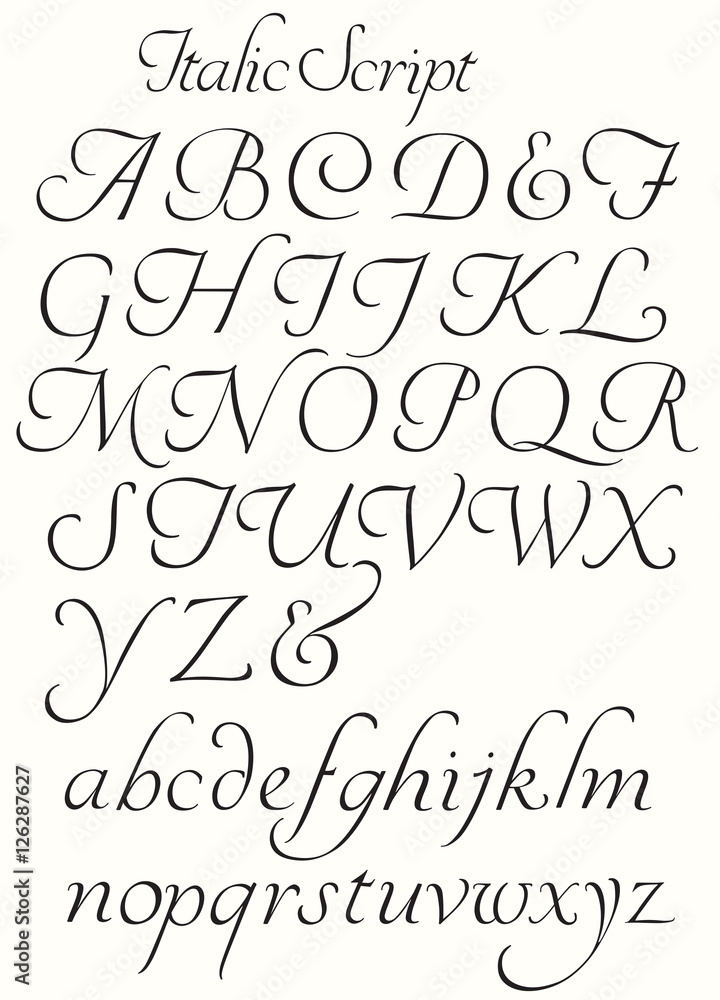 Italic Script
A B C D E F
G H I J K L
M N O P Q R
S T U V W X
Y Z &
a b c d e f g h i j k l m
n o p q r s t u v w x y z
Adobe Stock | #126287627